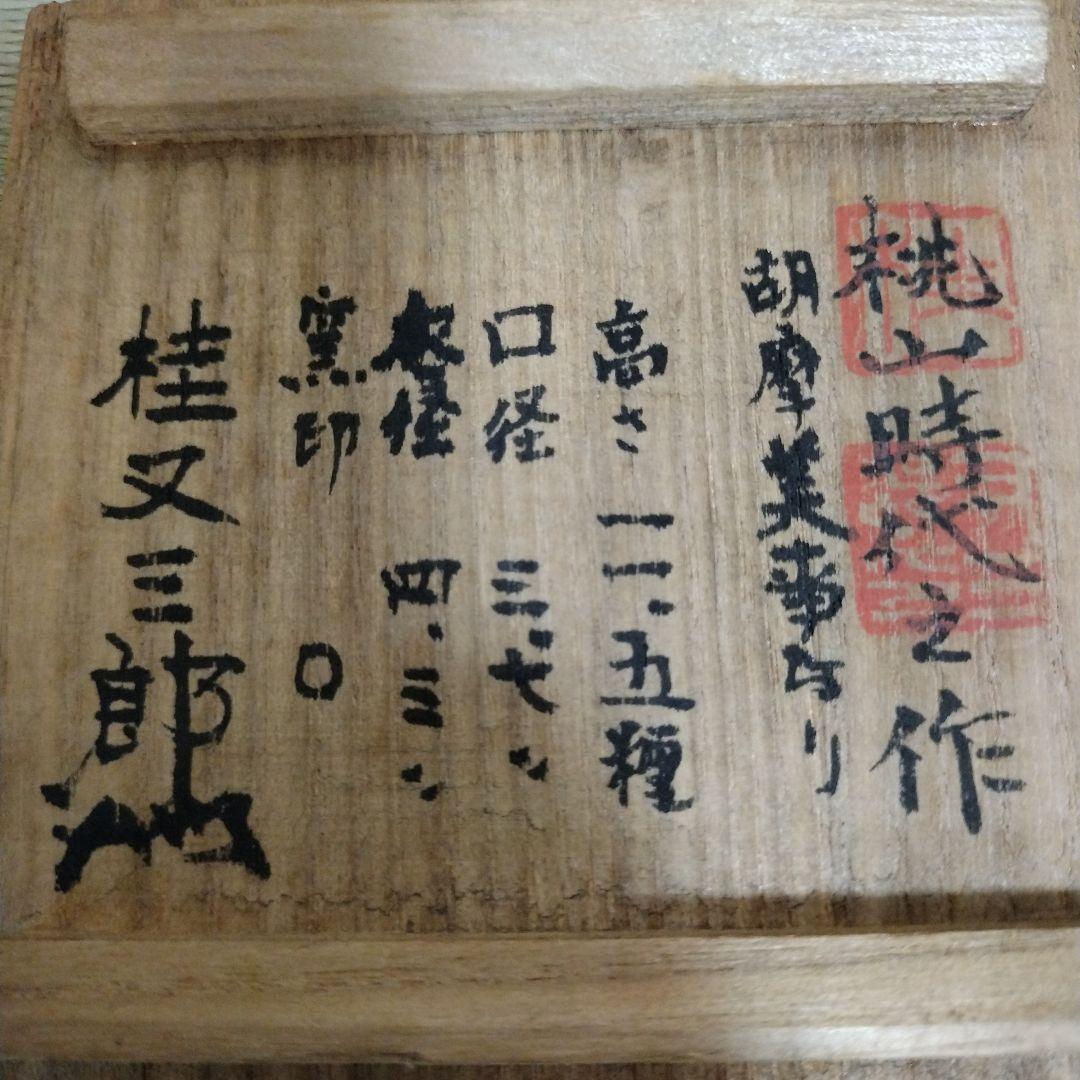 桃山時代之作
胡摩美事なり
高さ 一一.五糎
口径 三.七〃
底径 四.三〃
窯印 〇
桂又三郎